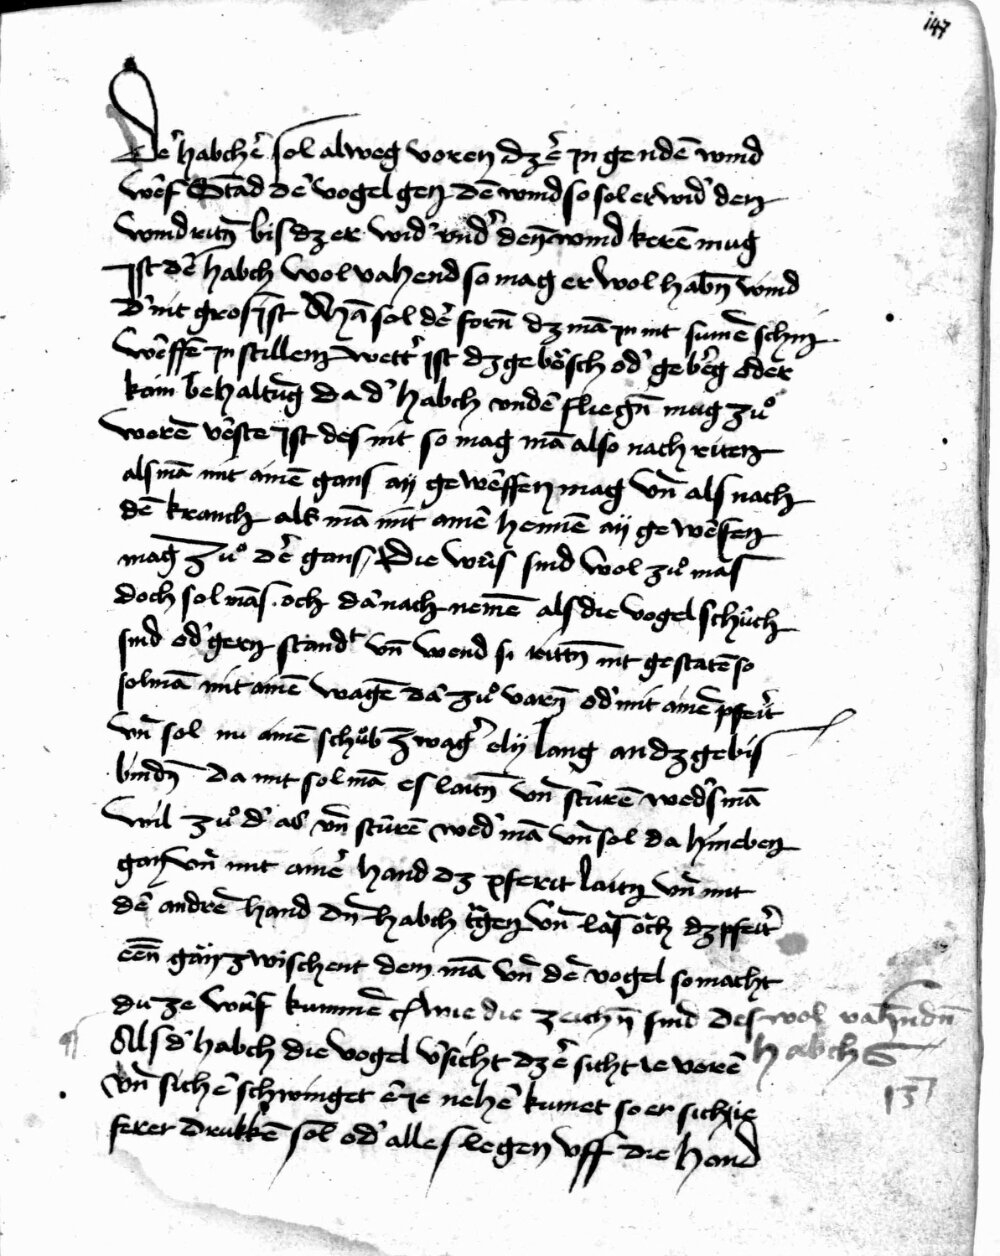 147
De᷑ habche᷑ sol alweg voren dz e᷑ in gendē wind
we᷑f Stād de᷑ vogel gen dē wind so sol er wid᷑ den
wind ritn̄ bis dz er wid᷑ vnd᷑ den wind kerē mug
Ist de᷑ habch wol vahend so mag er wol habn̄ wind
d᷑ nit gros ist Mā sol de᷑ forn̄ dz mā in nit sumē
we᷑ffē in stillem wett᷑ ist dz gebösch od᷑ gebe᷑g oder
kain behaltūg da d᷑ habch vndē fliegn̄ mug zuͦ
vorē ve᷑ste ist des nit so mag mā also nach riten
als mā mit ainē gans gewe᷑ffen mag vn̄ als nach
dē kranch als mā mit ainē gewe᷑fen
mag zuͦ de᷑ gans Die wu᷑f sind wol zuͦ mas
doch sol mās och da᷑ nach nemē als die vogel schu᷑ch
sind od᷑ gern stand vn̄ wend si rittn̄ nit gestatē so
sol mā mit ainē wagē da᷑ zuͦ varn̄ od᷑ mit ainē pferit
vn̄ sol ainē schub zwag᷑ eln lang an dz gebis
bindn̄ da mit sol mā es laitn̄ vn̄ stu᷑rē wed᷑s mā
wil zuͦ d᷑ vn̄ stu᷑rē wed᷑ mā vn̄ sol da hineben
gan vn̄ mit aine᷑ hand dz pferit laitn̄ vn̄ mit
de᷑ andrē hand dn̄ habch t᷑gen vn̄ las och dz pferit
gan zwischent dem mā vn̄ dē vogel so macht
du ze wu᷑f kummē Wie die zeichn̄ sind des wol vahendn̄
habchs
Als d᷑ habch die vogel v᷑sicht dz e᷑ sicht ie vorē
vn̄ sich schwinget e᷑ ie nehe᷑ kumet so er sich ie
ferer druckē sol od᷑ alles legen vff die hand